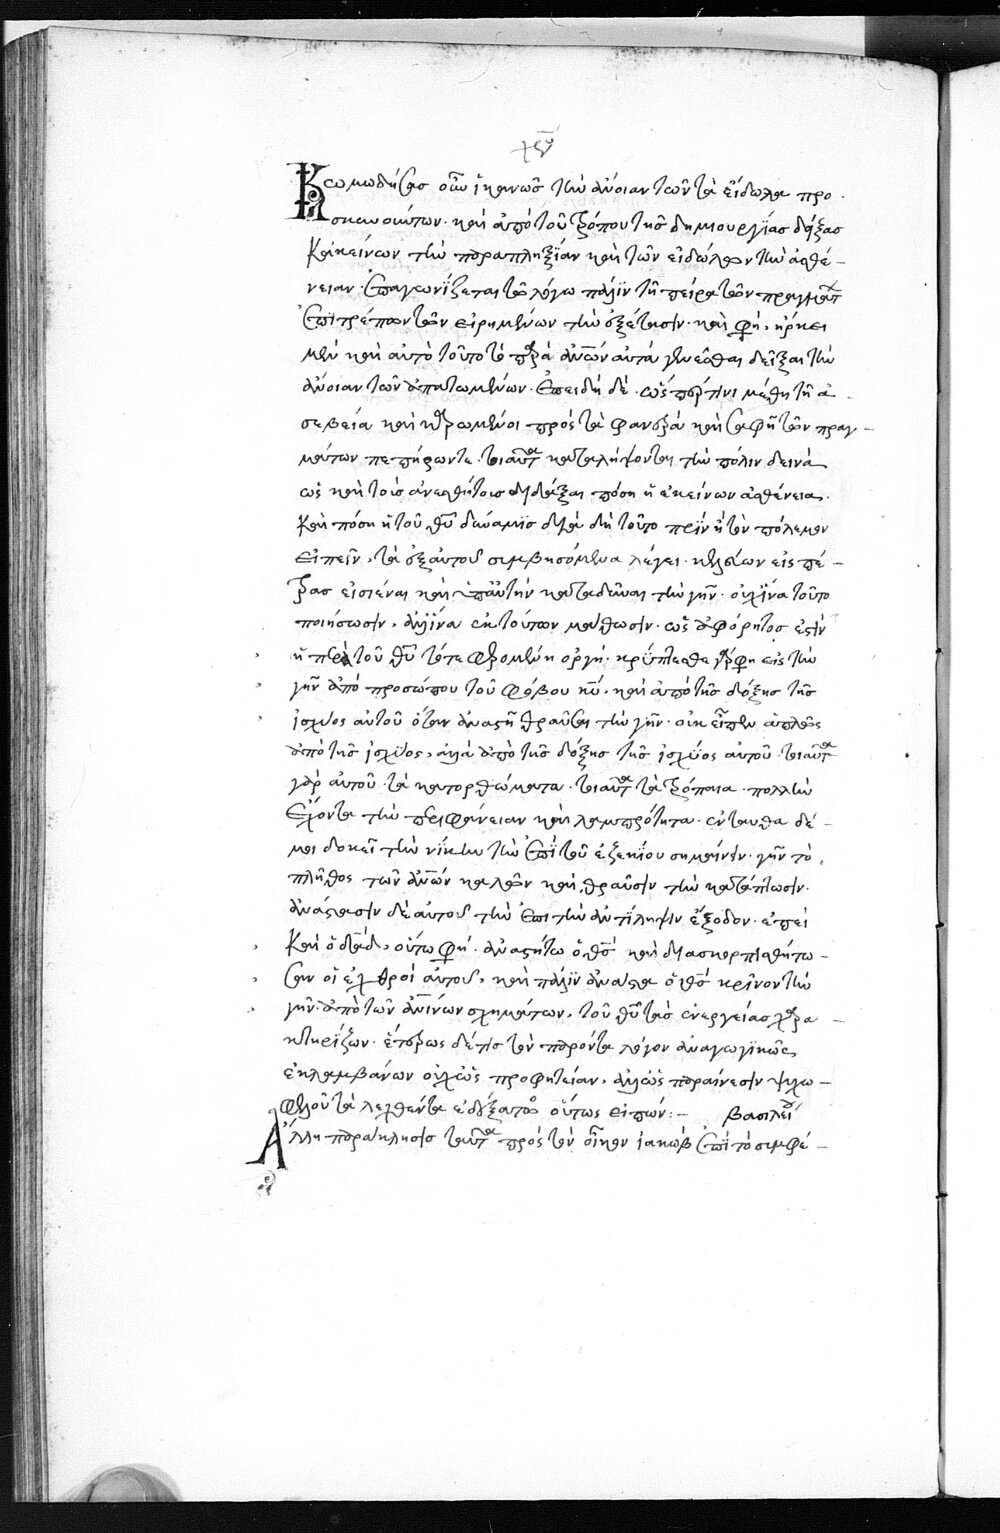 Κωμωδήσας οὖν ἱκανῶς τὴν ἄνοιαν τῶν τὰ εἴδωλα προ
σκυνούντων· καὶ ἀπὸ τοῦ τρόπου τῆς δημιουργίας δείξας
κἀκείνων τὴν παραπληξίαν καὶ τῶν εἰδώλων τὴν ἀσθέ-
νειαν· ἐπαγωνίζεται τῶ λόγω πάλιν τῆ πείρα τῶν πραγμάτ
ἐπιτρέπων τῶν εἰρημένων τὴν ἐξέτασιν· καὶ φη, ἤρκει
μὲν καὶ αὐτὸ τοῦτο τὸ παρὰ ἀνων αὐτὰ γενέσθαι δεῖξαι τὴν
ἄνοιαν τῶν ἀπατωμένων· ἐπειδὴ δὲ ὥσπερ τινὶ μέθη τῆ ἀ
σεβεία καὶ πρὸς τὰ φανερὰ καὶ σαφῆ τῶν πραγ-
μάτων καταλήψονται τὴν πόλιν δεινὰ
ὡς καὶ τοὺς ἀναισθήτους διδάξαι πόση ἡ ἐκείνων ἀσθένεια·
καὶ πόση ἡ τοῦ θυ δύναμις διὰ δὴ τοῦτο πρὶν ἢ τὸν πόλεμον
εἰπεῖν, τὰ ἐξ αὐτοῦ συμβησόμενα λέγει· κελεύων εἰς πέ-
τρας εἰσιέναι καὶ ὑπ αὐτὴν καταδῦναι τὴν γῆν· οὐχ ἵνα τοῦτο
ποιήσωσιν, ἀλλ ἵνα ἐκ τούτων μάθωσιν· ὡς ἀφόρητος ἐστὶν
ἡ παρὰ τοῦ θυ τότε φερομένη ὀργή· κρύπτεσθε γάρ φη εἰς τὴν
γῆν ἀπὸ προσώπου τοῦ φόβου κυ, καὶ ἀπὸ τῆς δόξης τῆς
ἰσχύος αὐτοῦ ὅταν ἀναστῆ θραῦσαι τὴν γῆν· οὐκ εἶπεν ἁπλῶς
ἀπὸ τῆς ἰσχύος, ἀλλὰ ἀπὸ τῆς δόξης τῆς ἰσχύος αὐτοῦ· τοιαῦτα
γὰρ αὐτοῦ τὰ κατορθώματα· τοιαῦτα τὰ τρόπαια· πολλὴν
ἔχοντα τὴν περιφάνειαν καὶ λαμπρότητα· ἐνταῦθα δέ-
μοι δοκεῖ τὴν νίκην τὴν ἐπὶ τοῦ ἐζεκίου σημαίνειν· γῆν τὸ
πλῆθος τῶν ἀνων καλῶν καὶ θραῦσιν τὴν κατάπτωσιν·
ἀνάστασιν δὲ αὐτοῦ τὴν ἐπὶ τὴν ἀντίληψιν ἔξοδον· ἐπεὶ
καὶ ὁ δαδ, οὕτω φη· ἀναστήτω ὁ θς καὶ διασκορπισθήτω-
σαν οἱ ἐχθροὶ αὐτοῦ, καὶ πάλιν ἀνάστα ὁ θς κρῖνον τὴν
γῆν· ἀπὸ τῶν ἀνινων σχημάτων, τοῦ θυ τὰς ἐνεργείας χαρα-
κτηρίζων· ἑτέρως δέ τις τὸν παρόντα λόγον ἀναγωγικῶς
ἐκλαμβάνων οὐχ ὡς προφητείαν, ἀλλ ὡς παραίνεσιν
τὰ λεχθέντα ἐδέξατο οὕτως εἰπών:- βασιλεί
Ἄλλη παράκλησις ταῦτα πρὸς τὸν οἶκον ἰακώβ ἐπὶ τὸ συμφέ-